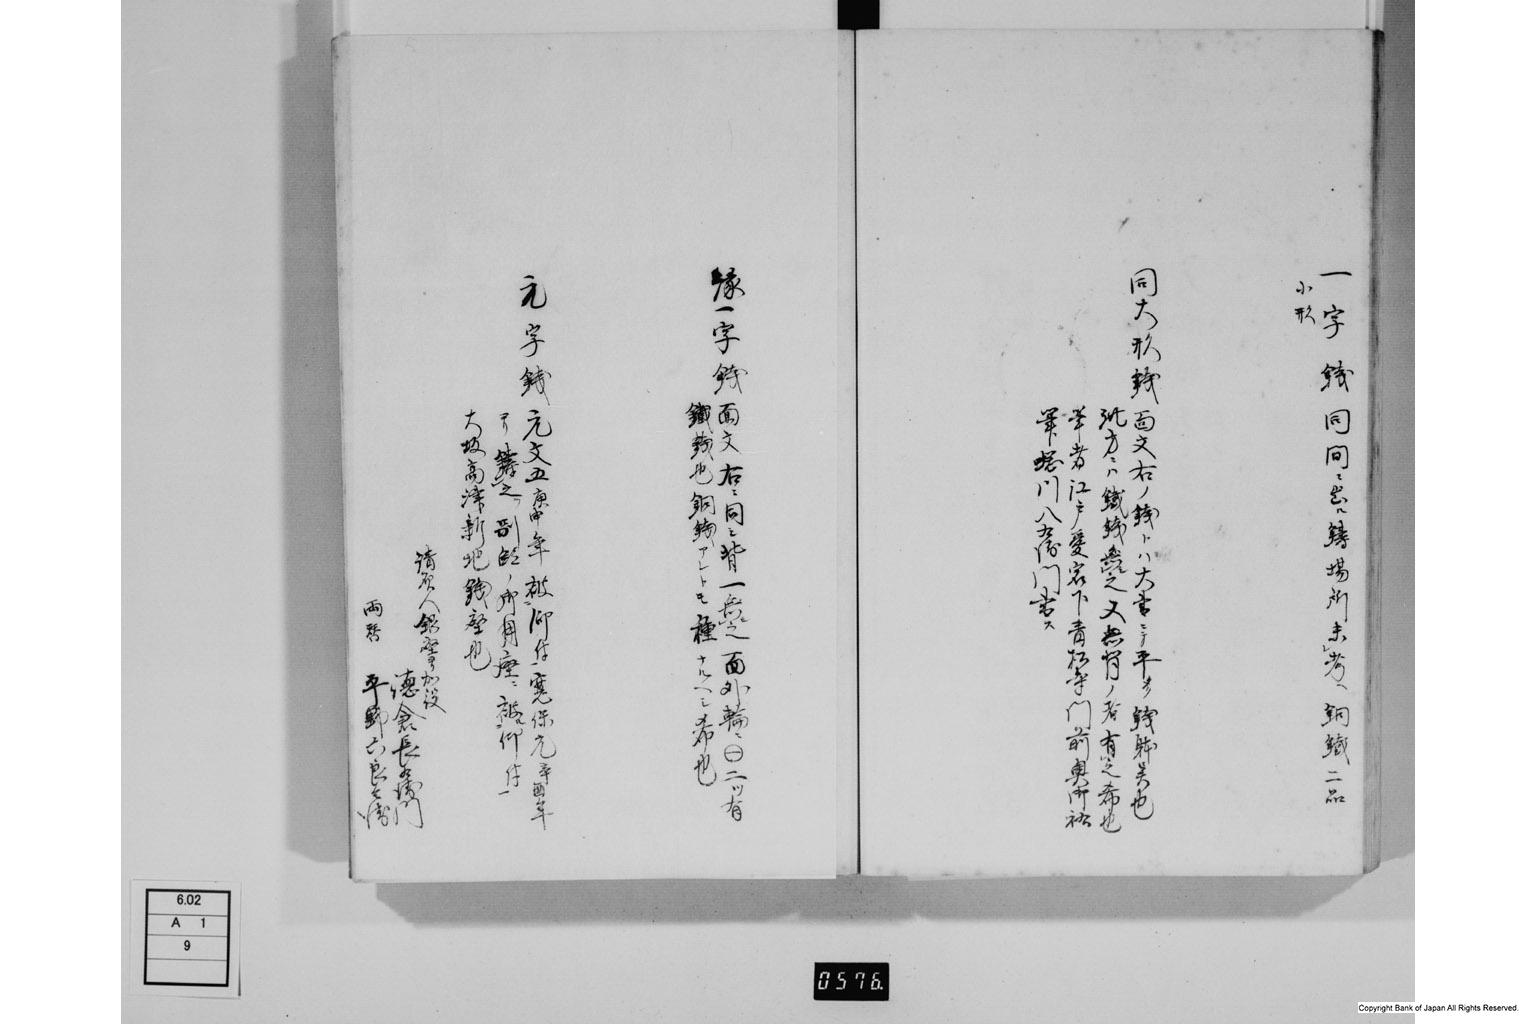 一字銭 同間ニ出ル鋳場所未考ヘ 銅鐵二品
小形
同大形銭 面文右ノ銭トハ大書ニテ平キ銭躰異也
此方ニハ鐵銭無之又無背ノ者有之希也
筆者江戸愛宕下青松寺門前奥御祐
筆蜷川八右衛門書ス
縁一字銭 面文右ニ同シ背一無之面外輪ニ㊀二ツ有
鐵銭也銅銭アレトモ種ナルヘシ希也
元字銭 元文五庚申年被仰付寛保元辛酉年
ヨリ鋳之 ノ御用座ニ被仰付
大坂高津新地銭座也
請負人銀座ヨリ加役
徳倉長右衛門
両替 平野六良兵衛
6.02
A 1
9
0576.
Copyright Bank of Japan All Rights Reserved.